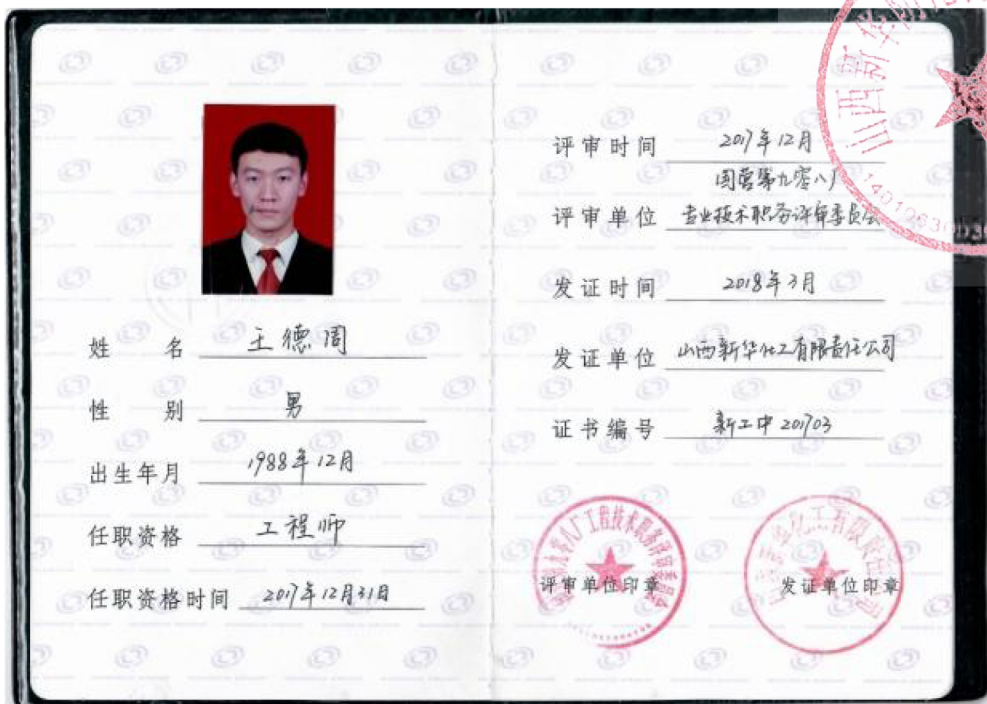 姓名 王德周
性别 男
出生年月 1988年12月
任职资格 工程师
任职资格时间 2017年12月31日
评审时间 2017年12月
国营第九零八厂
评审单位 专业技术职务评审委员会
发证时间 2018年3月
发证单位 山西新华化工有限责任公司
证书编号 新工中201703
评审单位印章
发证单位印章
山西新华防